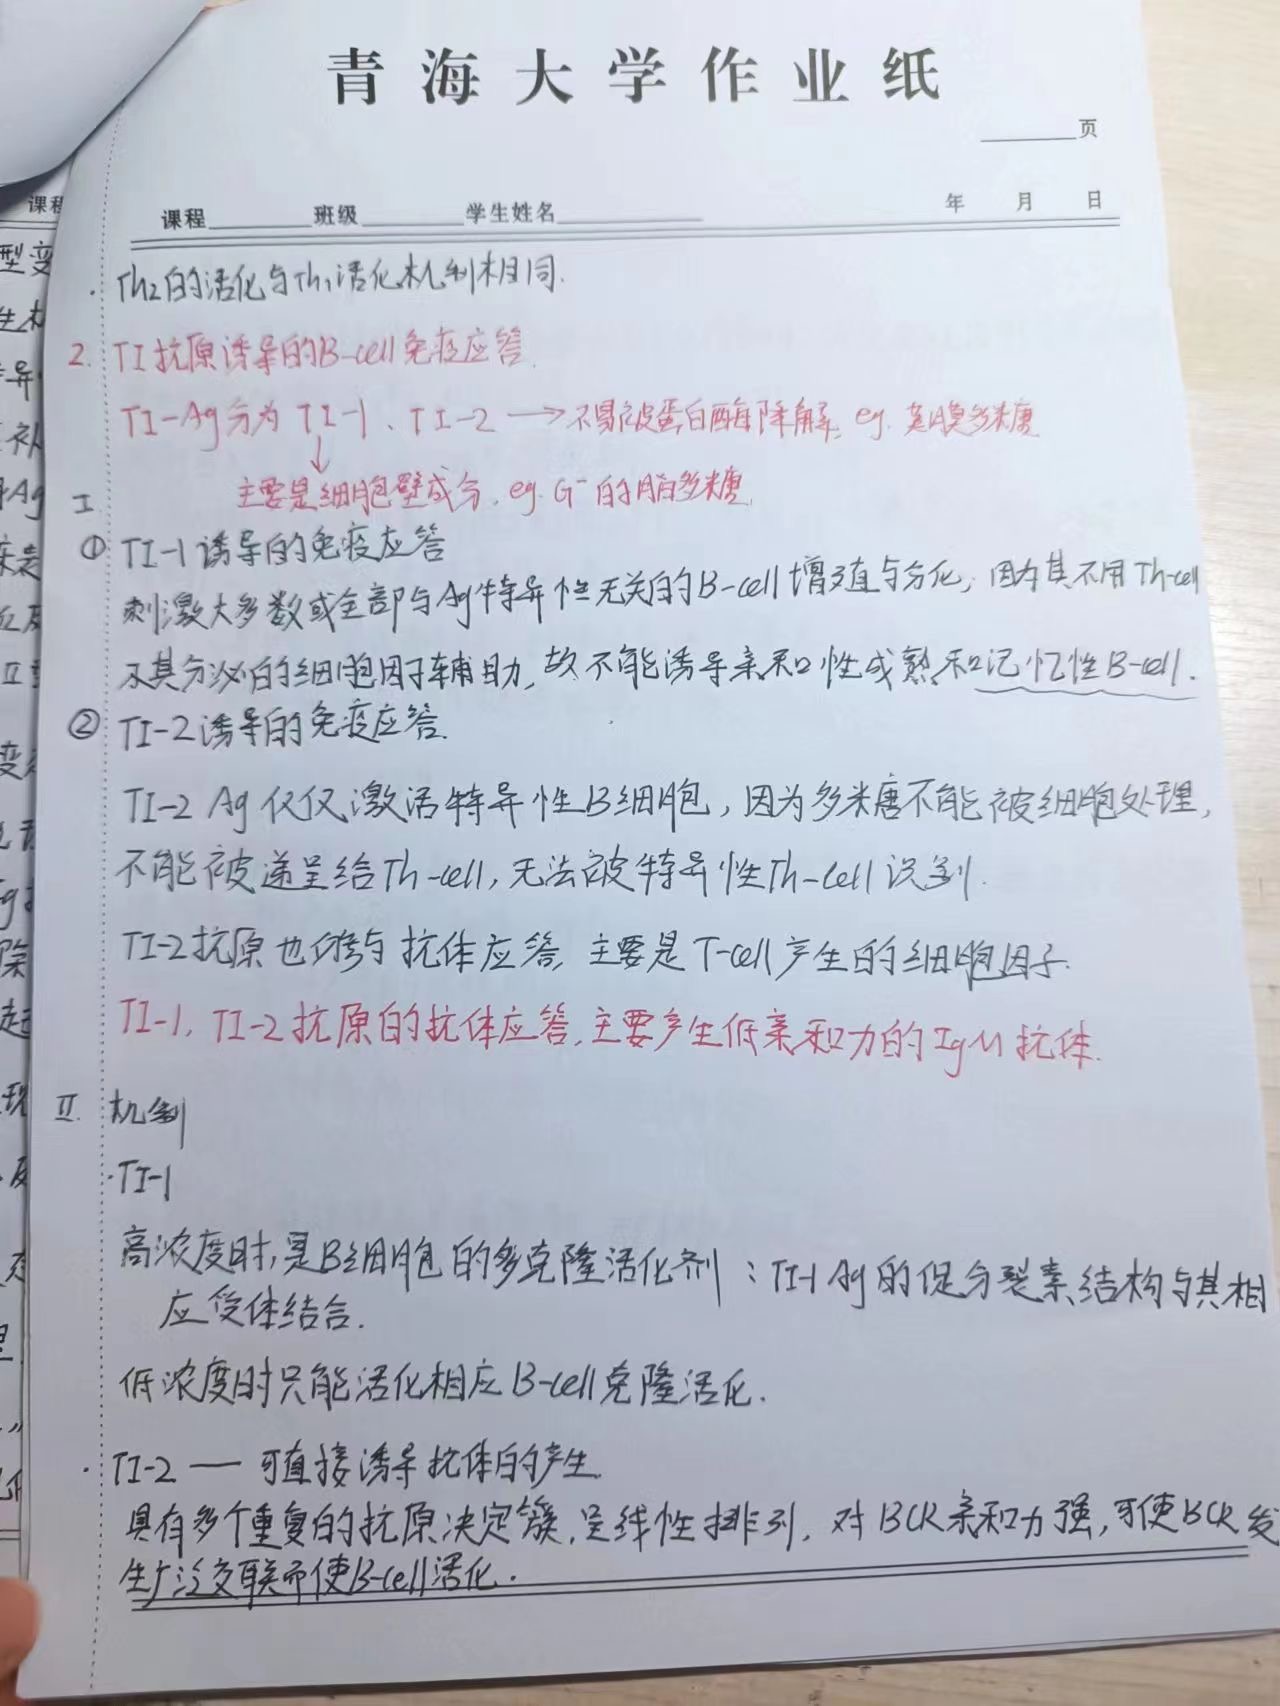 青海大学作业纸
页
课程 班级 学生姓名 年 月 日
· Th2的活化与Th1活化机制相同.
2. TI抗原诱导的B-cell免疫应答.
TI-Ag分为TI-1、TI-2 → 不易被蛋白酶降解, eg. 荚膜多糖
↓
主要是细胞壁成分. eg. G⁻的脂多糖
I
① TI-1诱导的免疫应答
刺激大多数或全部与Ag特异性无关的B-cell增殖与分化, 因为其不用Th-cell
及其分泌的细胞因子辅助, 故不能诱导亲和性成熟和记忆性B-cell.
② TI-2诱导的免疫应答.
TI-2 Ag仅仅激活特异性B细胞, 因为多糖不能被细胞处理,
不能被递呈给Th-cell, 无法被特异性Th-cell识别.
TI-2抗原也参与抗体应答, 主要是T-cell产生的细胞因子.
TI-1, TI-2抗原的抗体应答, 主要产生低亲和力的IgM抗体.
II. 机制
·TI-1
高浓度时, 是B细胞的多克隆活化剂: TI-1 Ag的促分裂素结构与其相
应受体结合.
低浓度时只能活化相应B-cell克隆活化.
· TI-2 — 可直接诱导抗体的产生.
具有多个重复的抗原决定簇, 呈线性排列, 对BCR亲和力强, 可使BCR发
生广泛交联而使B-cell活化.
课程
型变